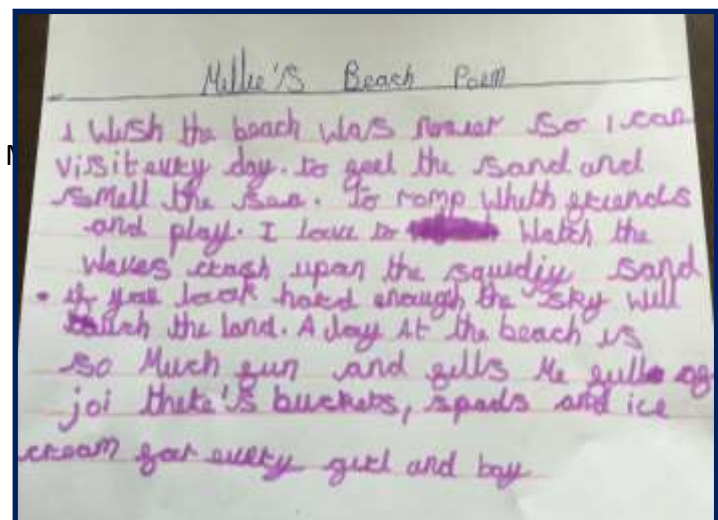 Millie's Beach Poem
I wish the beach was nearer so I can
visit every day. to feel the sand and
smell the sea. To romp whith friends
and play. I love to watch the
waves crash upon the squdjy sand
. if you look hard enough the sky will
touch the land. A day at the beach is
so much fun and fills me full of
joi there's buckets, spads and ice
cream for every girl and boy